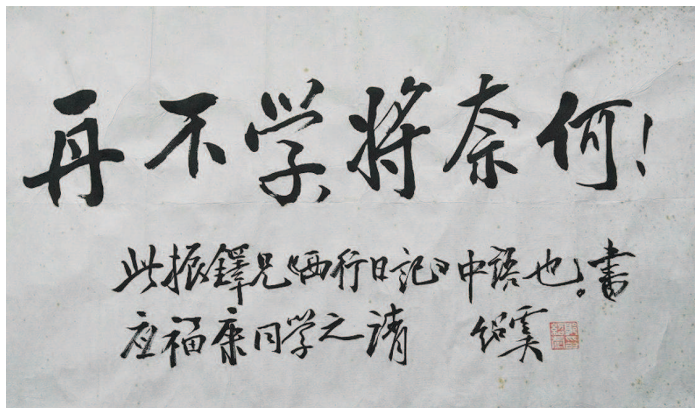 再不学将奈何！
此振鐸兄《西行日记》中語也。書
应福康同学之请 绍虞